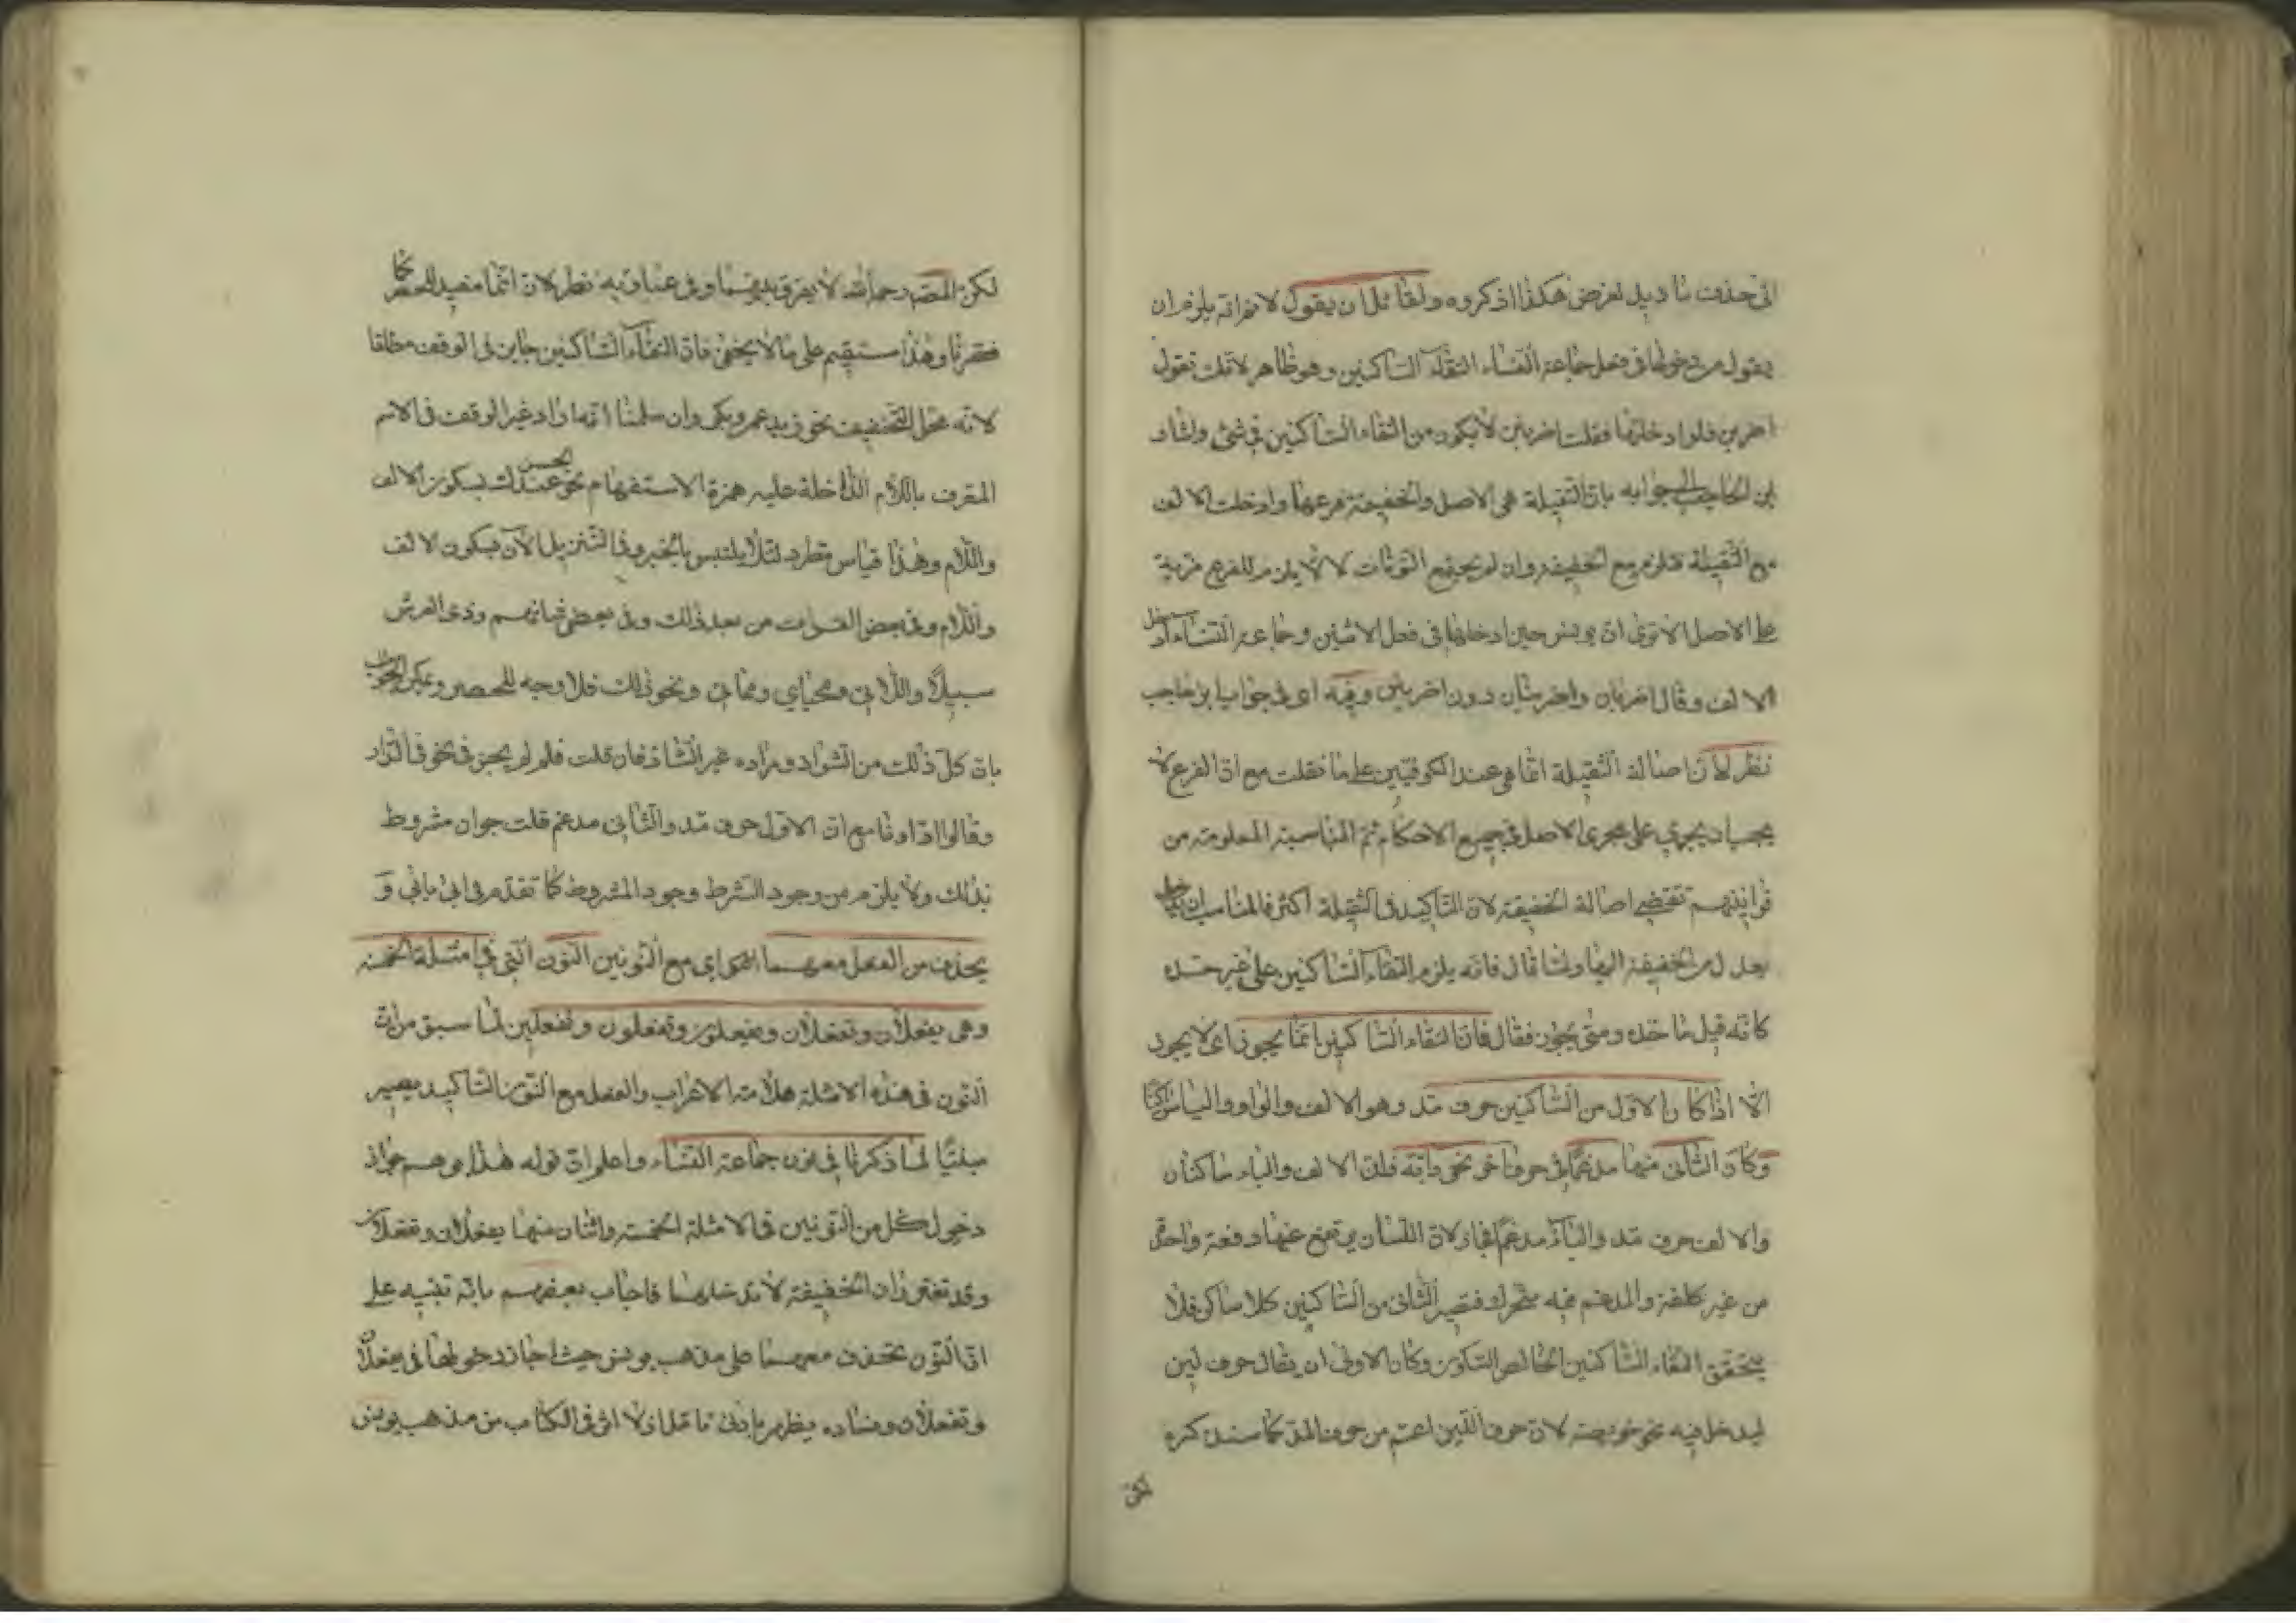 الى حذف ما ديل لغرض هكذا اذكروه ولقائل ان يقول لا خرافه يلزم ان
يقول من دخولها فى فعل جماعة النساء التقاء الساكنين وهو ظاهر لانك تقول
اضربن فلو ادخلتها فقلت اضربنان لا يكون من التقاء الساكنين فى شئ واشار
ابن الحاجب الى جوابه بان الثقيلة هى الاصل والخفيفة فرعها وادخلت الالف
مع الثقيلة فتلزم مع الخفيفة وان لم يجتمع النونات لئلا يلزم للفرع مزية
على الاصل الا ترى ان يونس حين ادخلها فى فعل الاثنين وجماعة النساء ادخل
الالف وقال اضربان واضربنان دون اضربنن وفيه اى فى جواب ابن حاجب
نظر لان اصالة الثقيلة انما هى عند الكوفيين على ما نقلت مع ان الفرع لا
يجب ان يجرى على مجرى الاصل فى جميع الاحكام ثم المناسبة المعلومة من
قوانينهم تقتضى اصالة الخفيفة لان التاكيد فى الثقيلة اكثر فالمناسب ان
يعدل من الخفيفة اليها ولما قال فانه يلزم التقاء الساكنين على غير حده
كانه قيل ما حده ومتى يجوز فقال فان التقاء الساكنين انما يجوز اى لا يجوز
الا اذا كان الاول من الساكنين حرف مد وهو الالف والواو والياء
وكان الثانى منهما مدغما فى حرف اخر نحو دابة فان الالف والباء ساكنان
والالف حرف مد والباء مدغم فجاز لان اللسان يرتفع عنهما دفعة واحدة
من غير كلفة والمدغم فيه متحرك فيصير الثانى من الساكنين كلا ساكن فلا
يتحقق التقاء الساكنين الخالص السكون وكان الاولى ان يقال حرف لين
ليدخل فيه نحو خويصة لان حرف اللين اعم من حرف المد كما سنذكره
لكن
لكن المصنف رحمه الله لا يفرق بينهما وفى عبارته نظر لان انما مفيد للحصر كما
فقرنا وهذا مستقيم على ما لا يخفى فان التقاء الساكنين جايز فى الوقف مطلقا
لانه محل التخفيف نحو زيد عمرو بكر وان سلمنا انه اراد غير الوقف فى الاسم
المعرف باللام الداخلة عليه همزة الاستفهام نحو الحسن عندك بسكون الالف
واللام وهذا قياس مطرد لئلا يلتبس بالخبر وفى التنزيل الآن بسكون الالف
واللام وفى بعض القراءت من بعد ذلك وفى بعض شانهم وذى العرش
سبيلا واللائى ومحياي ومماتى ونحو ذلك فلا وجه للحصر ويمكن الجواب
بان كل ذلك من الشواذ ومراده غير الشاذ فان قلت فلم لم يجز فى نحو فى الدار
وقالوا ادارانا مع ان الاول حرف مد والثانى مدغم قلت جوازه مشروط
بذلك ولا يلزم من وجود الشرط وجود المشروط كما تقدم فى ابى يابى و
يحذف من الفعل معهما اى مع النونين النون التى فى امثلة الخمسة
وهى يفعلان وتفعلان ويفعلون وتفعلون وتفعلين لما سبق من ان
النون فى هذه الامثلة علامة الاعراب والفعل مع النون التاكيد يصير
مبنيا لما ذكرنا فى نون جماعة النساء واعلم ان قوله هذا يوهم جواز
دخول كل من النونين فى الامثلة الخمسة واثنان منها يفعلان وتفعلان
وقد تقرر ان الخفيفة لا تدخلهما فاجاب بعضهم بانه تنبيه على
ان النون تحذف معهما على مذهب يونس حيث اجاز دخولها فى يفعلان
وتفعلان وفساده يظهر بادنى تامل اذ لا اثر فى الكتاب من مذهب يونس